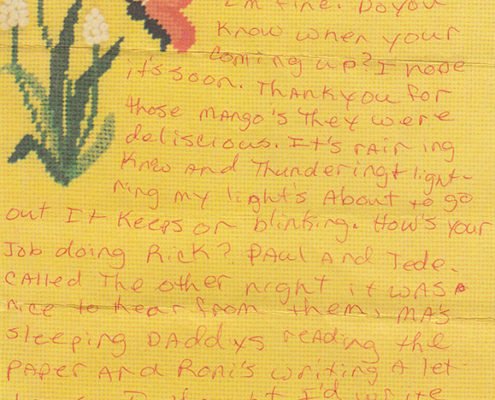 I'm fine. Do you
know when your
coming up? I hope
it's soon. Thankyou for
those mango's They were
deliscious. It's rair ing
know And Thundering + light-
ning my light's About to go
out It keeps on blinking. How's your
Job doing Rick? PAul And Tede.
cAlled The other night it was
nice to hear from them, MA's
sleeping DADdys reAding the
pAper And Roni's writing A let-
I thought I'd write